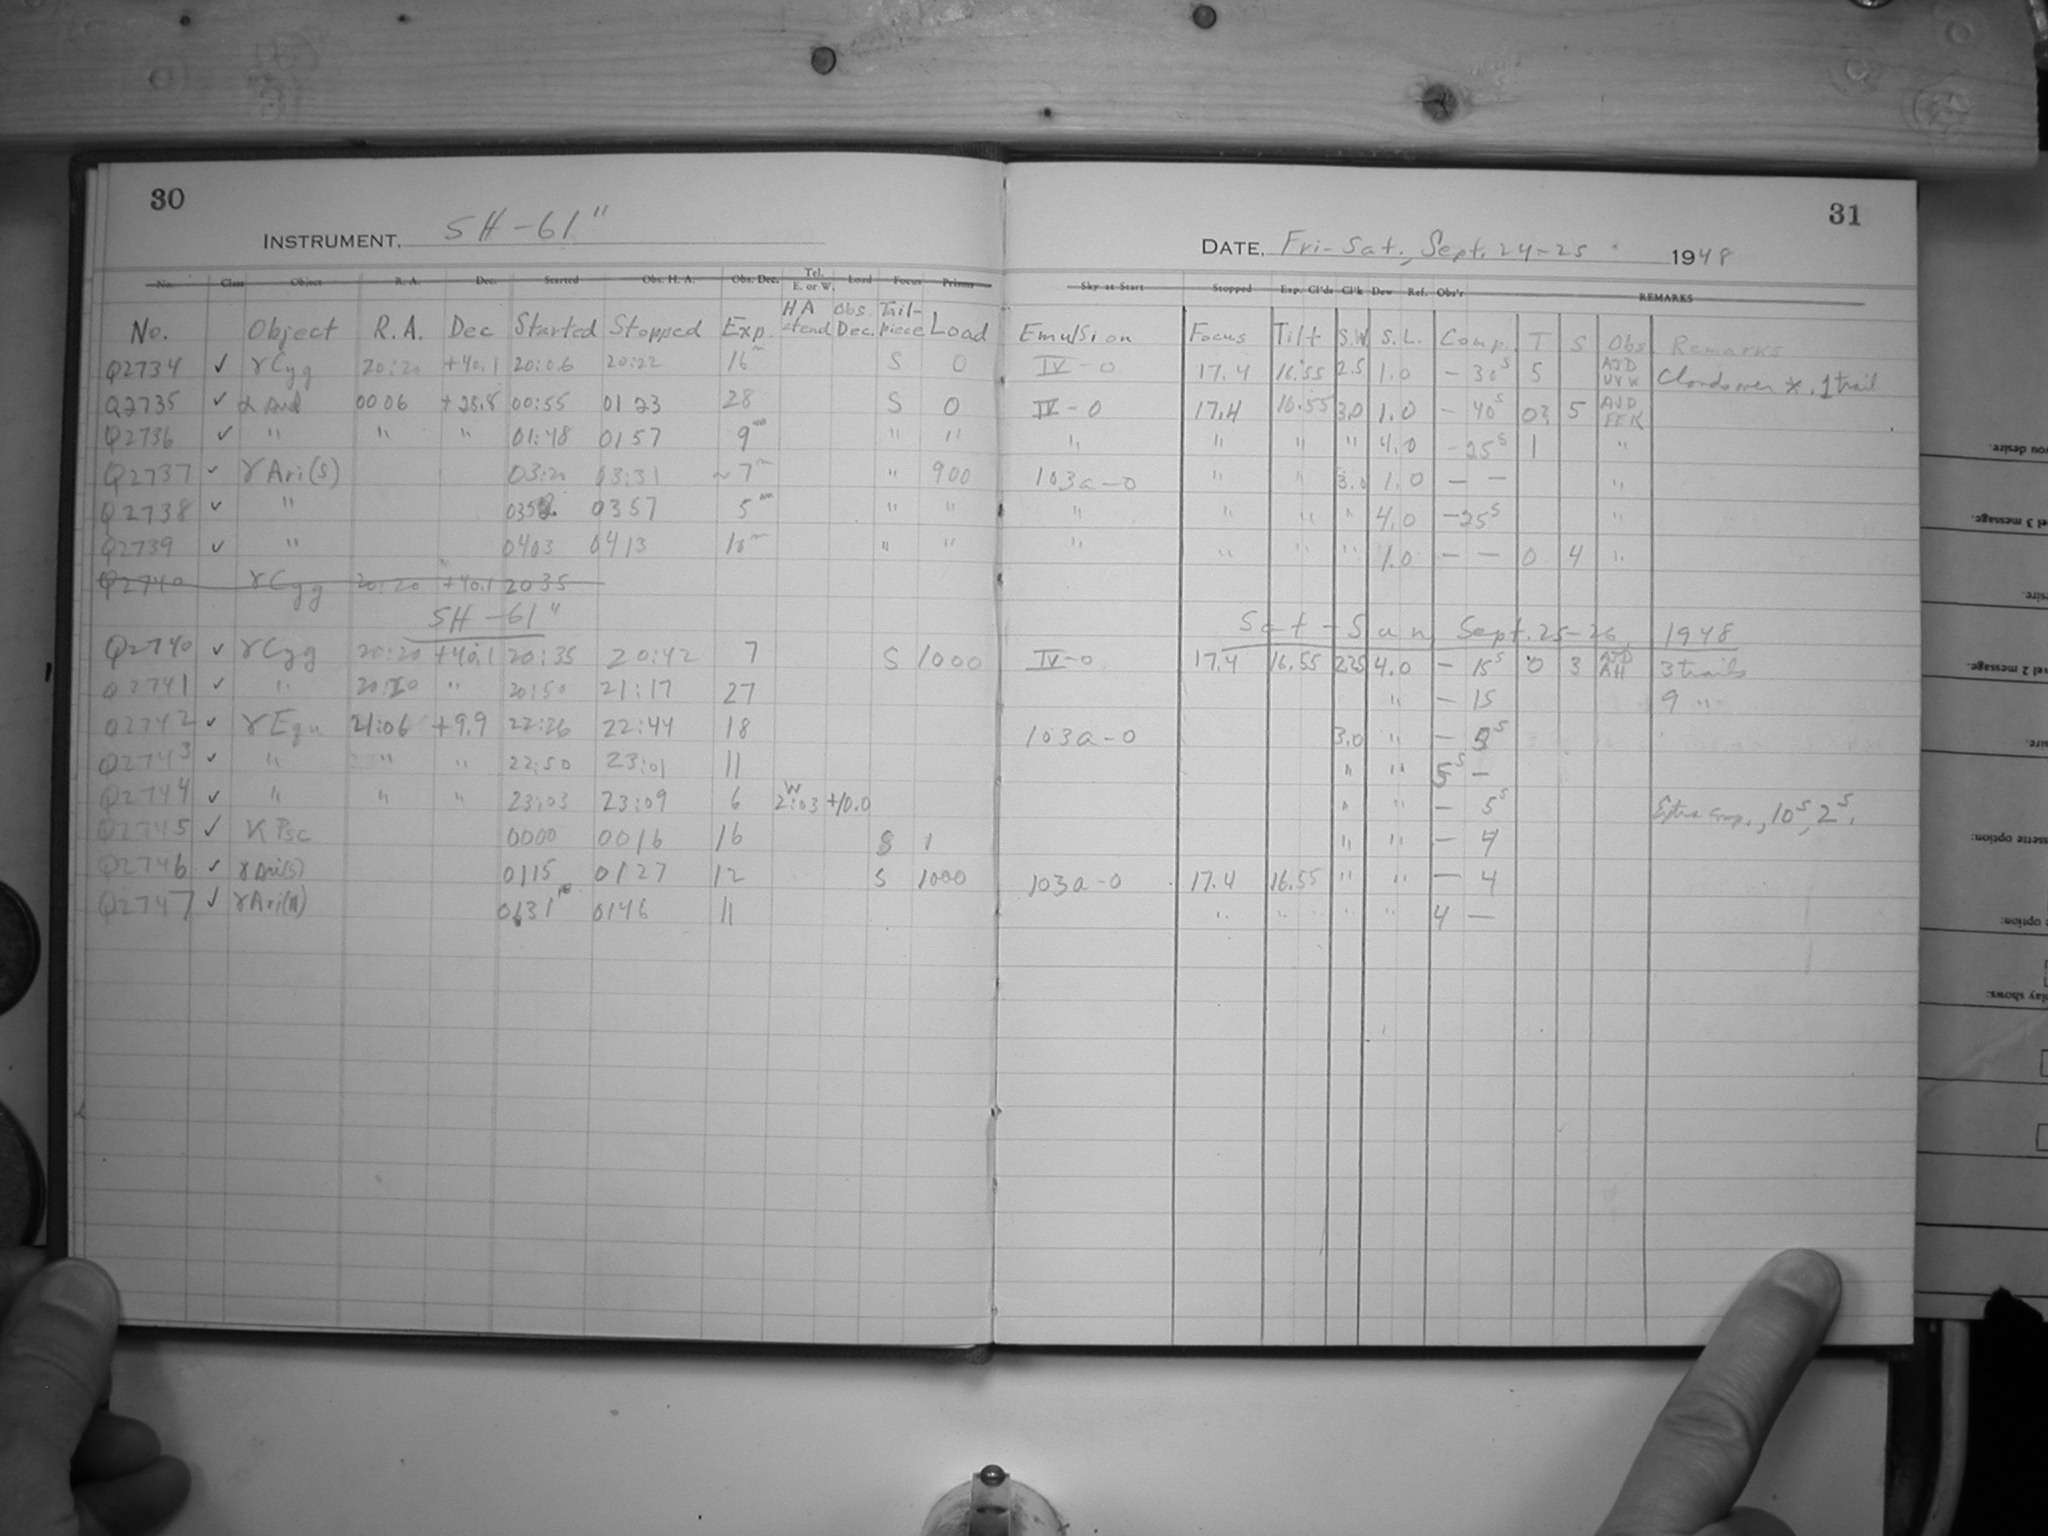 30
INSTRUMENT. SH-61"
No. Class Object R. A. Dec. Started Obs. H. A. Obs. Dec. Tel. E. or W. Load Focus Prisms
No. Object R.A. Dec Started Stopped Exp. HA @end Obs. Dec. Tail-piece Load
Q2734 ✓ γ Cyg 20:20 +40.1 20:06 20:22 16m S 0
Q2735 ✓ α And 0006 +28.8 00:55 0123 28 S 0
Q2736 ✓ " " " 01:48 0157 9m " "
Q2737 ✓ γ Ari(S) 03:20 03:31 ~7m " 900
Q2738 ✓ " 0352 0357 5m " "
Q2739 ✓ " 0403 0413 10m " "
Q2740 γ Cyg 20:20 +40.1 2035
SH-61"
Q2740 ✓ γ Cyg 20:20 +40.1 20:35 20:42 7 S 1000
Q2741 ✓ " 20:20 " 20:50 21:17 27
Q2742 ✓ γ Equ 21:06 +9.9 22:26 22:44 18
Q2743 ✓ " " " 22:50 23:01 11
Q2744 ✓ " " " 23:03 23:09 6 W 2:03 +10.0
Q2745 ✓ κ Psc 0000 0016 16 S 1
Q2746 ✓ γ Ari(S) 0115 0127 12 S 1000
Q2747 ✓ γ Ari(N) 0131 0146 11
31
DATE. Fri-Sat., Sept. 24-25 1948
Sky at Start Stopped Exp. Cl'ds Cl'k Dew Ref. Obs'r REMARKS
Emulsion Focus Tilt S.W. S.L. Comp. T S Obs. Remarks
IV-0 17.4 16.55 2.5 1.0 - 30s 5 AJD Clouds over *. 1 trail
IV-0 17.4 16.55 3.0 1.0 - 40s 0? 5 AJD FEK
" " " " 4.0 - 25s 1 "
103a-0 " " 3.0 1.0 - - "
" " " " 4.0 - 25s "
" " " " 1.0 - - 0 4 "
Sat-Sun Sept. 25-26, 1948
IV-0 17.4 16.55 2.25 4.0 - 15s 0 3 AJD AH 3 trails
" - 15 9 "
103a-0 3.0 " - 5s
" " 5s -
" " - 5s Extra comp., 10s, 2s.
" " - 4
103a-0 17.4 16.55 " " - 4
" " " " 4 -
you desire.
el 3 message.
sire.
el 2 message.
ssette option:
option:
play shows: